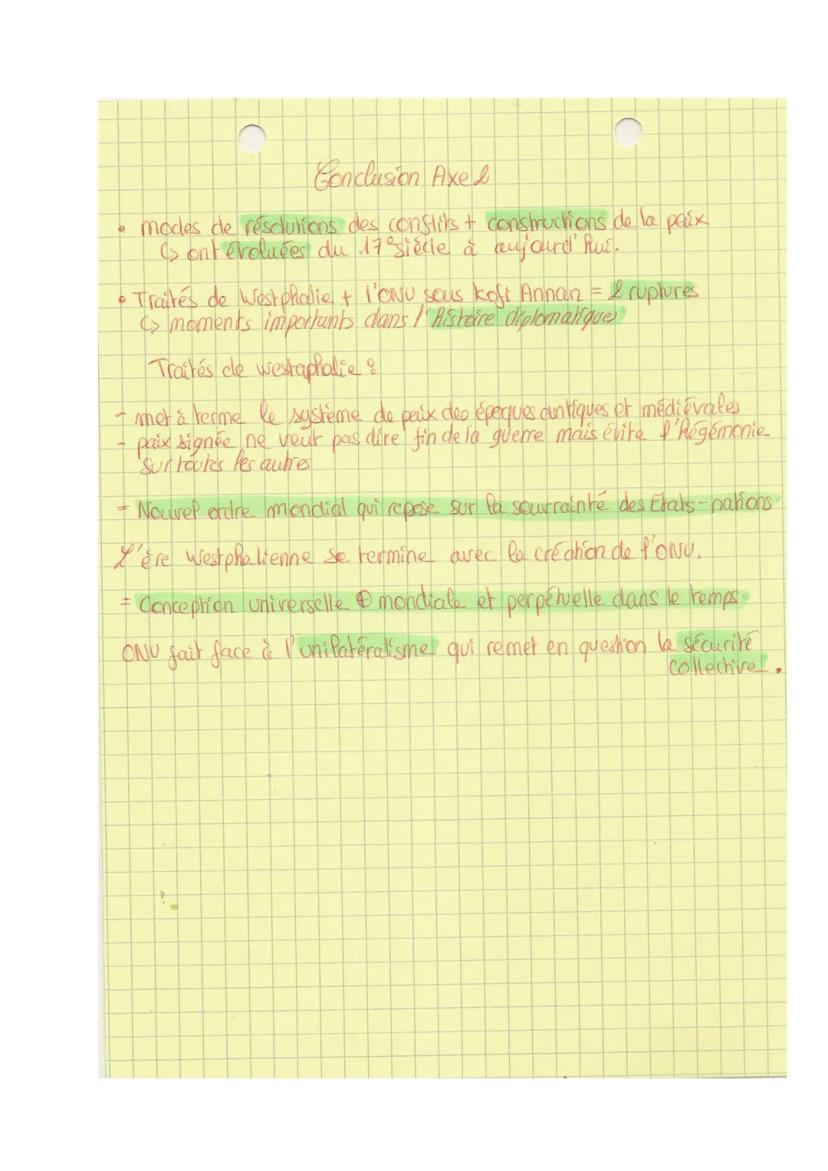 Conclusion Axe 2
• modes de résolutions des conflits + constructions de la paix
↳ ont évoluées du 17e siècle à aujourd'hui.
• Traités de Westphalie + l'ONU sous Kofi Annan = 2 ruptures
↳ moments importants dans l'histoire diplomatique
Traités de westaphalie :
- met à terme le système de paix des époques antiques et médiévales
- paix signée ne veut pas dire fin de la guerre mais évite l'hégémonie
sur toutes les autres
= Nouvel ordre mondial qui repose sur la sourrainté des Etats-nations
L'ère Westphalienne se termine avec la création de l'ONU.
= Conception universelle ⊕ mondiale et perpétuelle dans le temps
ONU fait face à l'unilatéralisme qui remet en question la sécurité
collective.